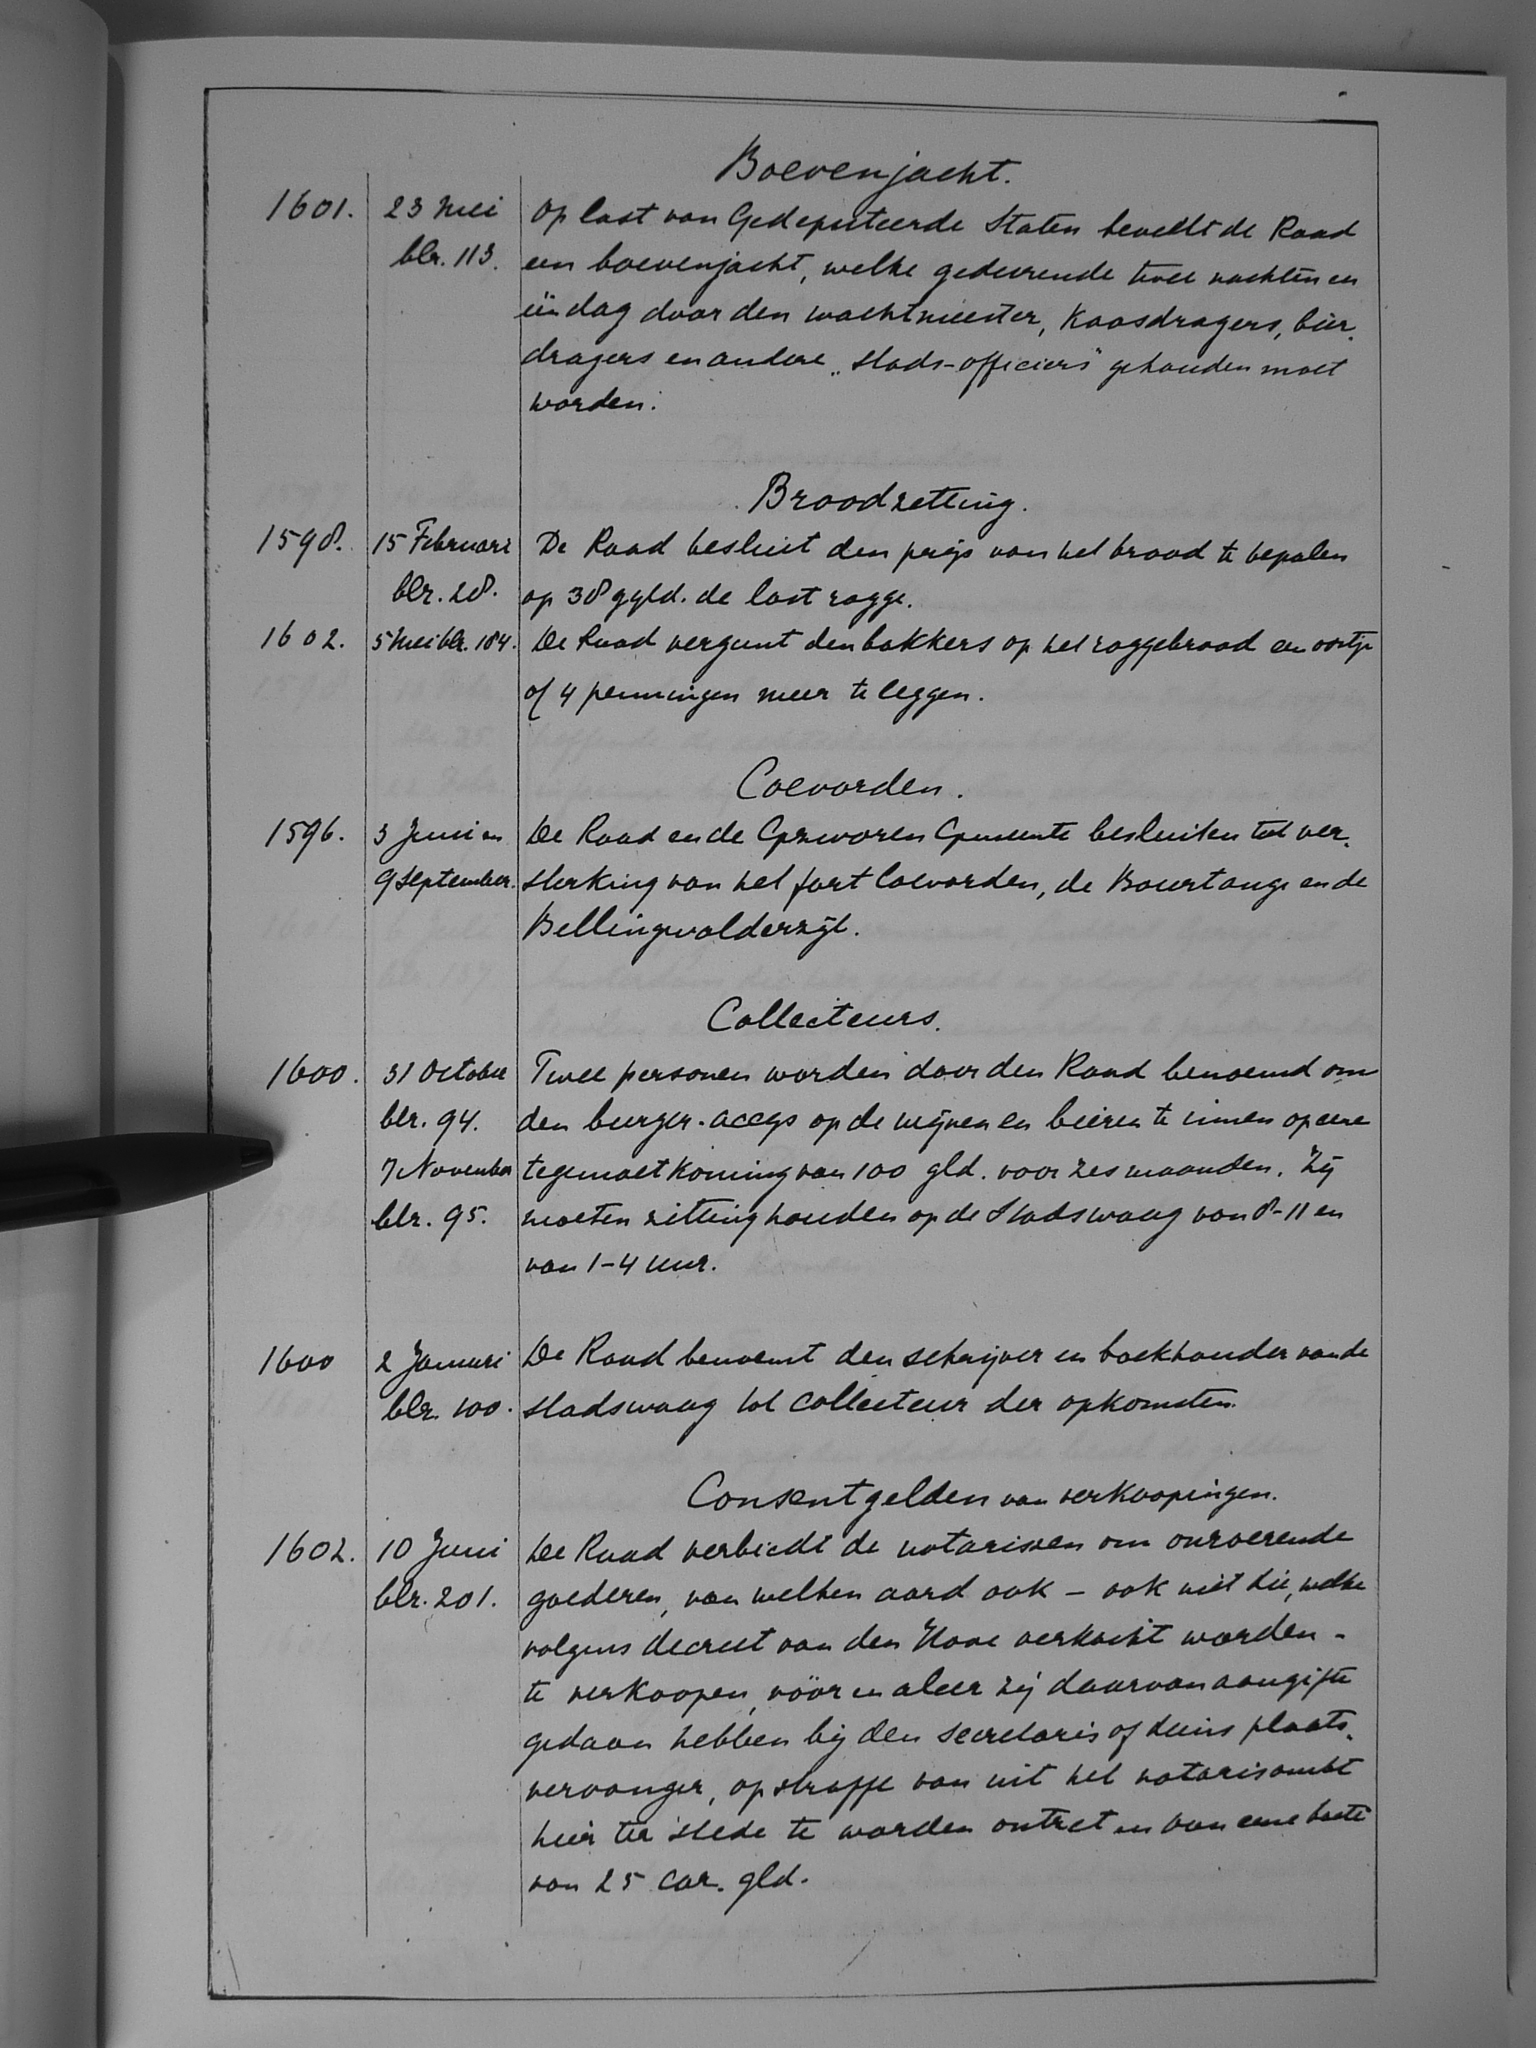 Boevenjacht.
1601. 23 Mei Op last van Gedeputeerde Staten beveelt de Raad
blz. 113. een boevenjacht, welke gedurende twee nachten en
één dag door den wachtmeester, Kaasdragers, bier-
dragers en andere „stads-officiers" gehouden moet
worden.
Broodzetting.
1598. 15 Februari De Raad besluit den prijs van het brood te bepalen
blz. 28. op 38 ggld. de last rogge.
1602. 5 Mei blz. 184. De Raad vergunt den bakkers op het roggebrood een oortje
of 4 penningen meer te leggen.
Coevorden.
1596. 3 Juni en De Raad en de Gezworen Gemeente besluiten tot ver-
9 September. sterking van het fort Coevorden, de Bourtange en de
Bellingwolderzijl.
Collecteurs.
1600. 31 October Twee personen worden door den Raad benoemd om
blz. 94. den burger-accijs op de wijnen en bieren te innen op eene
7 November tegemoetkoming van 100 gld. voor zes maanden. Zij
blz. 95. moeten zitting houden op de Stadswaag van 8-11 en
van 1-4 uur.
1600 2 Januari De Raad benoemt den schrijver en boekhouder van de
blz. 100. stadswaag tot collecteur der opkomsten.
Consentgelden van verkoopingen.
1602. 10 Juni De Raad verbiedt de notarissen om onroerende
blz. 201. goederen, van welken aard ook – ook niet die, welke
volgens decreet van den Hove verkocht worden –
te verkoopen, vóór en aleer zij daarvan aangifte
gedaan hebben bij den secretaris of diens plaats-
vervanger, op straffe van uit het notarisambt
hier ter stede te worden ontzet en van eene boete
van 25 Car. gld.